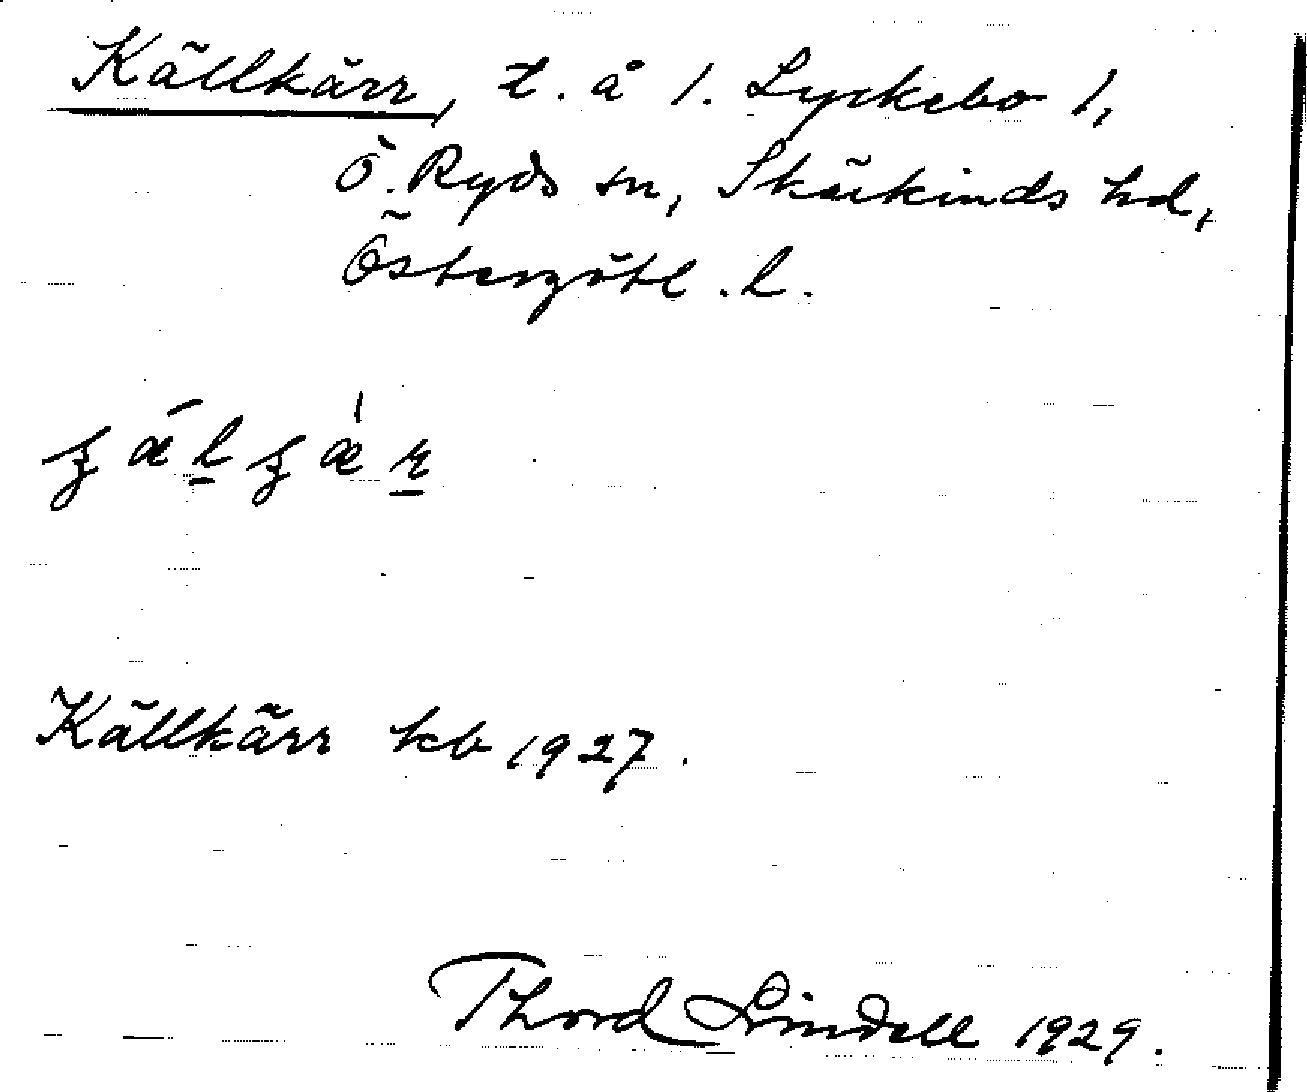 Källkärr, t. å 1. Lyckebo 1,
Ö. Ryds sn, Skärkinds hd,
Östergötl. l.
Källkärr kb 1927.
Thord Lindell 1929.